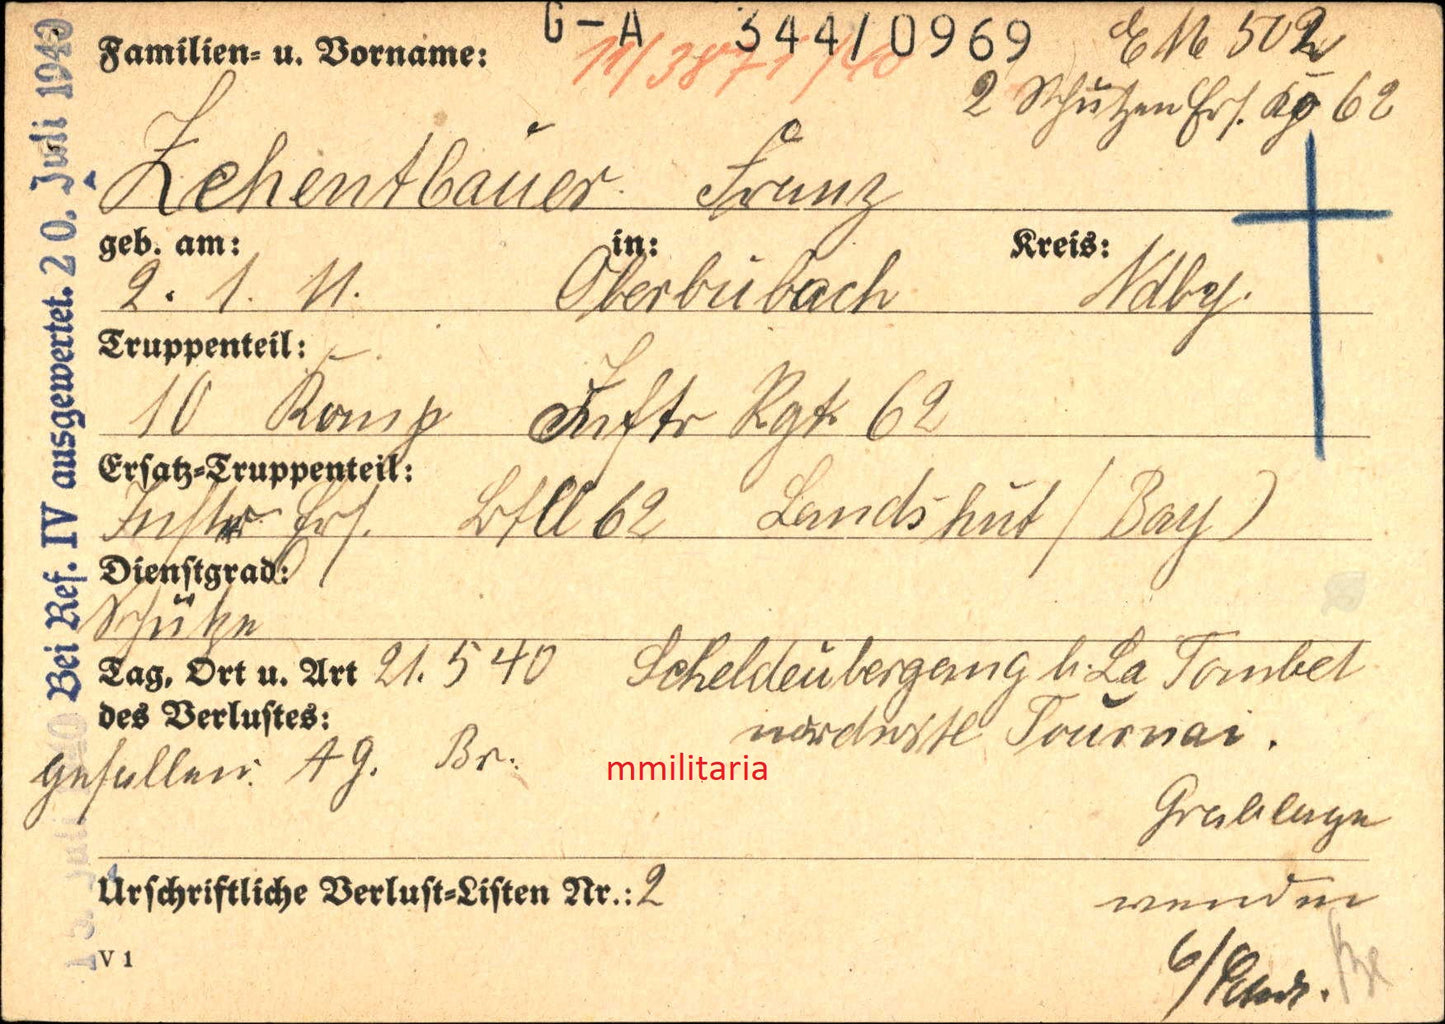 G-A 344/0969
11/3871/40
EM 502
2 Schützen Ers. Kp 62
Familien- u. Vorname:
Zehentbauer Franz
geb. am: in: Kreis:
2. 1. 11. Oberbübach Ndby.
Truppenteil:
10 Komp Inftr Rgt 62
Ersatz-Truppenteil:
Inftr Ers. Btll 62 Landshut (Bay)
Dienstgrad:
Schütze
Tag, Ort u. Art 21. 5 40 Scheldeübergang b. La Tombel
des Verlustes: nordwstl Tournai.
gefallen. AG. Br.
mmilitaria
Grablage
Urschriftliche Verlust-Listen Nr.: 2
wenden
V 1
Bei Ref. IV ausgewertet. 20. Juli 1940